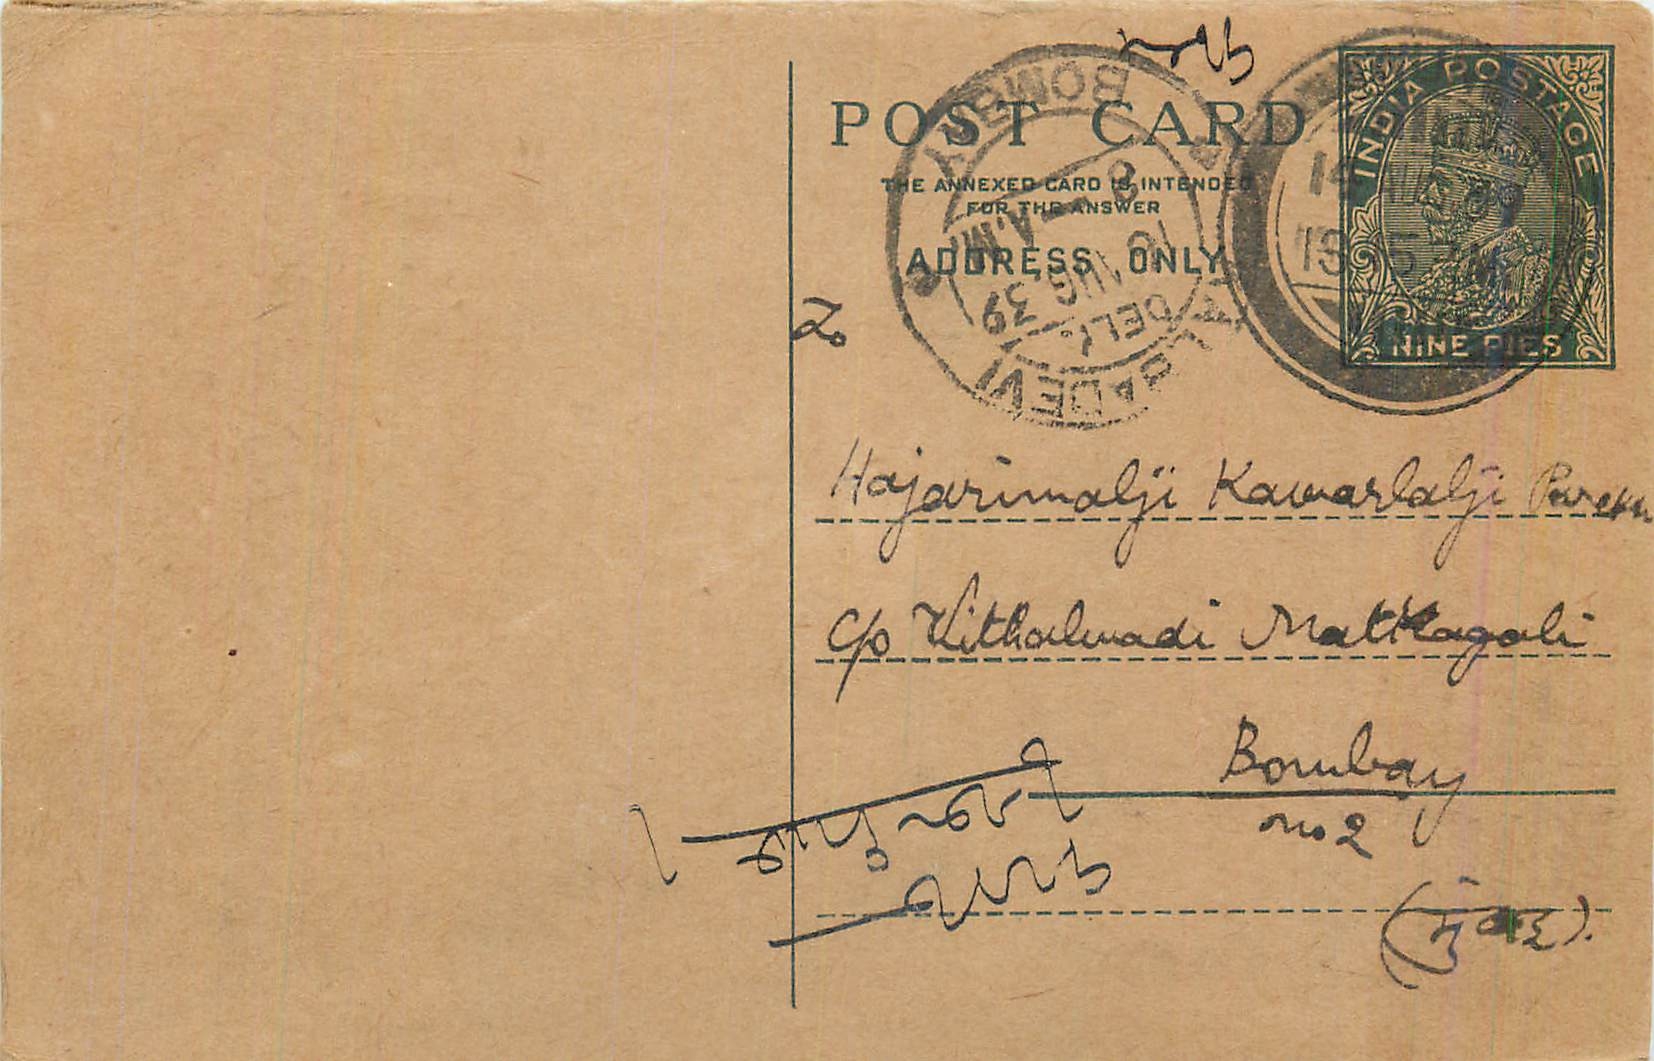 POST CARD
THE ANNEXED CARD IS INTENDED
FOR THE ANSWER
ADDRESS ONLY
INDIA POSTAGE
NINE PIES
BOMBAY
8 A.M.
16 AUG. 39
DELY.
KALBADEVI
Hajarimalji Kawarlalji
c/o Vithalwadi Matkagali
Bombay
no 2
(मुंबई).